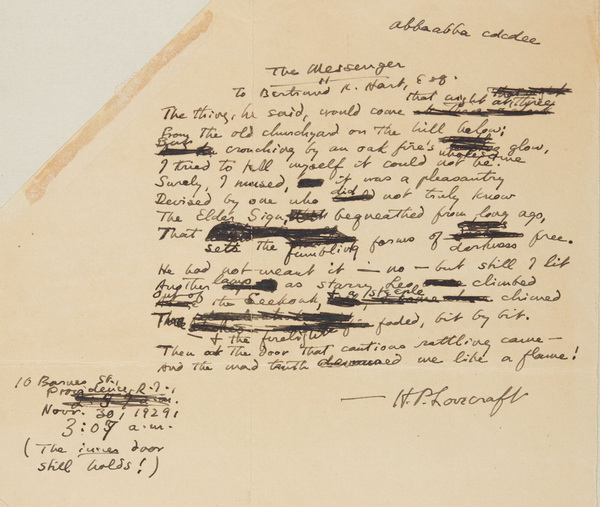 abbaabba cdcdee
The Messenger
To Bertrand K. Hart, Esq.
The thing, he said, would come that night at three
From the old churchyard on the hill below;
crouching by an oak fire's wholesome glow,
I tried to tell myself it could not be.
Surely, I mused, it was a pleasantry
Devised by one who did not truly know
The Elder Sign, bequeathed from long ago,
That sets the fumbling forms of darkness free.
He had not meant it — no — but still I lit
Another lamp as starry Leo climbed
Out of the Seekonk, & a steeple chimed
Three — & the firelight faded, bit by bit.
Then at the door that cautious rattling came —
And the mad truth devoured me like a flame!
— H. P. Lovecraft
10 Barnes St.,
Providence, R.I.,
Novr. 30, 1929,
3:07 a.m.
(The inner door
still holds!)